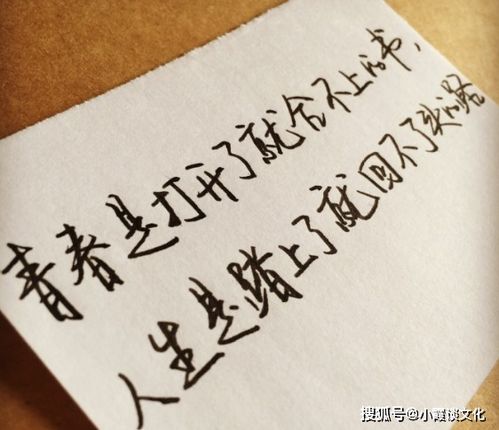 青春是打开了就合不上的书，
人生是踏上了就回不了头的路
搜狐号@小霞谈文化